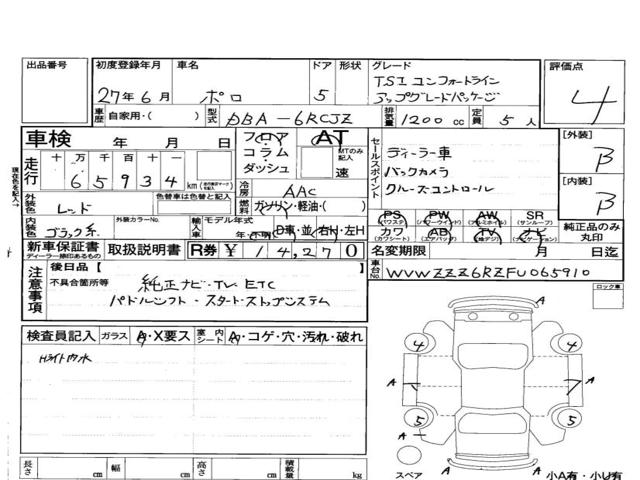 出品番号
初度登録年月
車名
ドア
形状
グレード
評価点
27年6月
ポロ
5
TSIコンフォートライン
アップグレードパッケージ
4
車歴
自家用・( )
型式
DBA-6RCJZ
排気量
1200 cc
定員
5人
車検
年 月 日
フロア
コラム
ダッシュ
AT
MTのみ記入
速
セールスポイント
ディーラー車
バックカメラ
クルーズコントロール
[外装]
B
[内装]
B
現在色を記入→
走行
十 万 千 百 十 一
6 5 9 3 4 km
冷房
AAC
燃料
ガソリン・軽油・( )
外装色
レッド
色替車は色替と記入
内装色
ブラック系
外装カラーNo.
輸入車
モデル年式
年・不明
D車・並 右H・左H
PS
(パワステ)
PW
(パワーウインド)
AW
(アルミホイル)
SR
(サンルーフ)
カワ
(カワシート)
AB
(エアバック)
TV
(地デジ)
ナビ
(ナビゲーション)
純正品のみ
丸印
新車保証書
ディーラー捺印あるもの
取扱説明書
R券
¥ 14,270
名変期限
月 日迄
注意事項
後日品[ ]
不具合箇所等
純正ナビ・TV ETC
パドルシフト・スタートストップシステム
車台No.
WVWZZZ6RZFU065910
ロック車
検査員記入
ガラス
A・X要ス
室内シート
A・コゲ・穴・汚れ・破れ
Hライト内水
4
4
A
A
5
5
A
スペア
A
小A有・小U有
長さ
cm
幅
cm
高さ
cm
積載量
kg